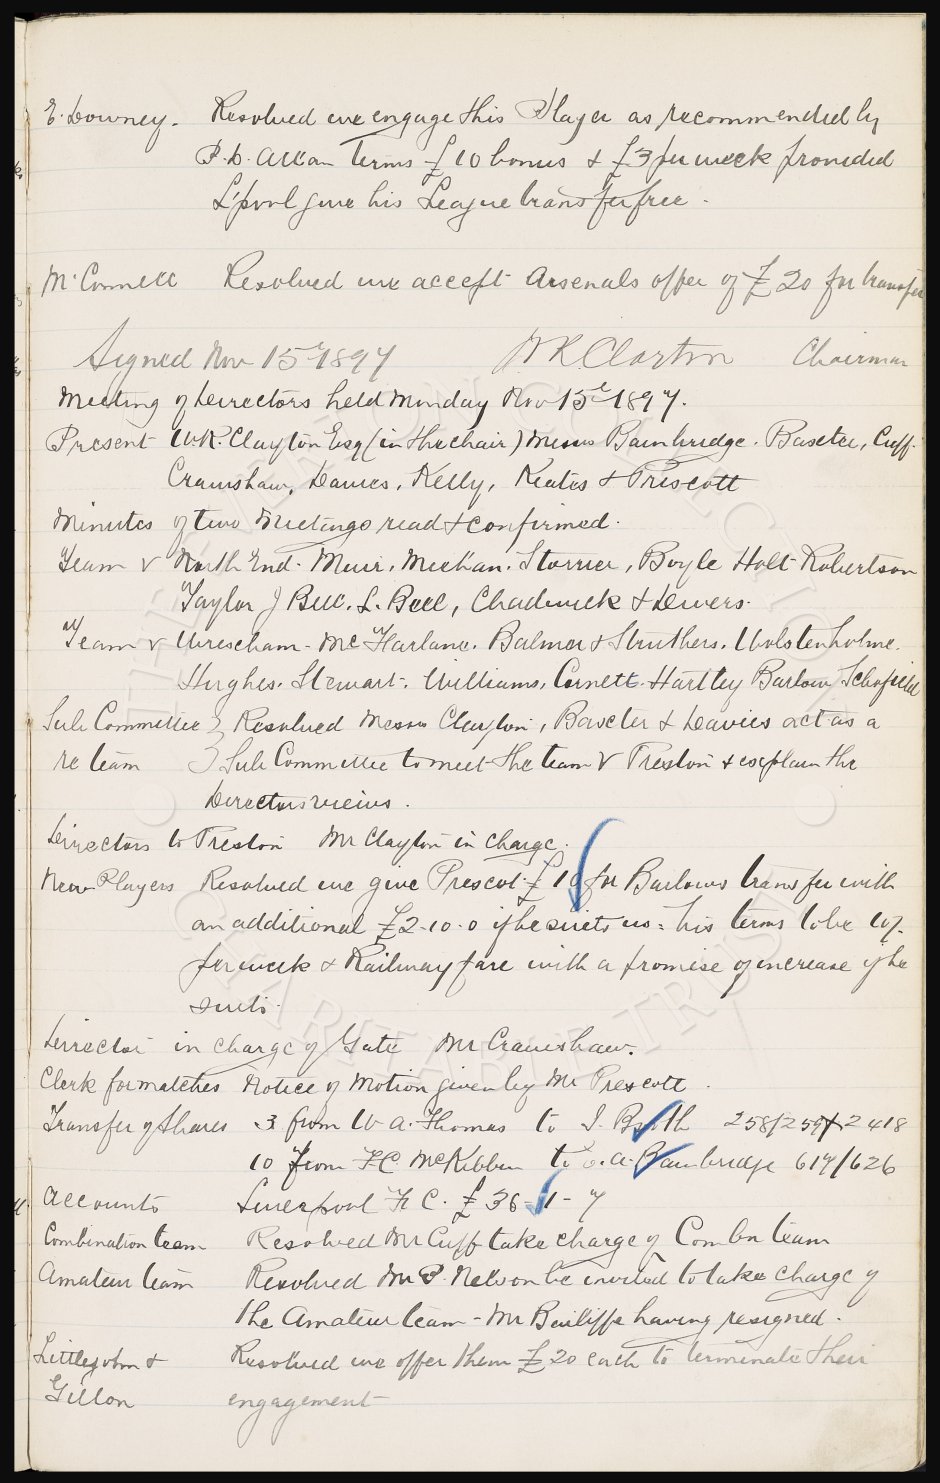 E. Downey. Resolved we engage this Player as recommended by
P. D. Allan Terms £10 bonus & £3 per week provided
L'pool give his League transfer free.
McConnell Resolved we accept Arsenals offer of £20 for transfer
Signed Nov 15th 1897 W R Clayton Chairman
Meeting of Directors held Monday Nov 15th 1897.
Present W.R. Clayton Esq (in the chair) Messrs Bainbridge. Baxter, Cuff.
Crawshaw, Davies, Kelly, Keates & Prescott
Minutes of two Meetings read & confirmed.
Team v North End. Muir, Meehan. Storrier, Boyle Holt Robertson
Taylor J Bell. L. Bell, Chadwick & Divers.
Team v Wrexham - McFarlane. Balmer & Struthers. Wolstenholme.
Hughes. Stewart. Williams, Cornett. Hartley Barlow Schofield
Sub Committee } Resolved Messrs Clayton, Baxter & Davies act as a
re team } Sub Committee to meet the team v Preston & explain the
Directors views.
Directors to Preston Mr Clayton in charge.
New Players Resolved we give Prescot £10 for Barlows transfer with
an additional £2-10-0 if he suits us: his terms to be 10/-
per week & Railway fare with a promise of increase if he
suits.
Director in charge of Gate Mr Crawshaw.
Clerk for matches Notice of Motion given by Mr Prescott.
Transfer of Shares 3 from W A. Thomas to J. 258/259 & 2418
10 from F C McKibbin to A. Bainbridge 617/626
Accounts Liverpool F. C. £36-1-7
Combination team Resolved Mr Cuff take charge of Combn team
Amateur team Resolved Mr P. Nelson be invited to take charge of
the Amateur team - Mr Bailiffe having resigned.
Littlejohn & Resolved we offer them £20 each to terminate their
Gillon engagement